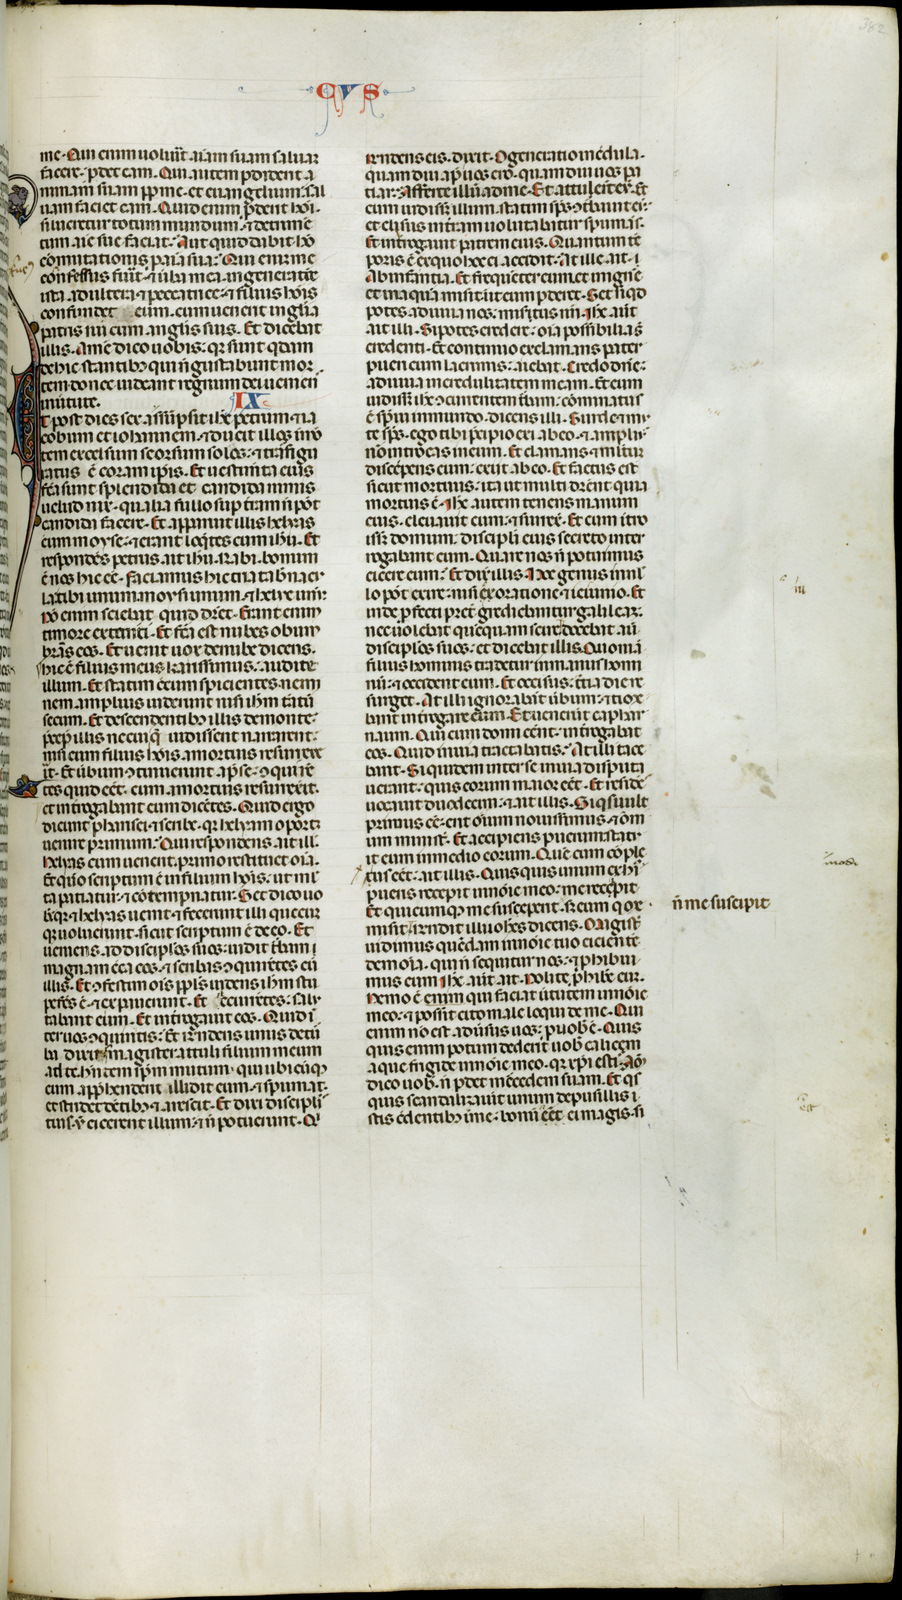 382
CVS
me. Qui enim uoluit aīam suam saluam
facere: ꝑdet eam. Qui autem ꝑdiderit a
nimam suam ꝓpt me. et euangelium: sal
uam faciet eam. Quid enim ꝓderit hoī.
si lucretur totum mundum: ⁊ detrimē
tum aīe sue faciat: Aut quid dabit hō
cōmutationis ꝓ aīa sua: Qui enī me
confessus fuit: ⁊ uerba mea. in generatiōe
ista adultera ⁊ peccatrice. ⁊ filius hoīs
confundet eum. cum uenerit in glīa
patris sui cum anglis suis. Et dicebat
illis. Amē dico uobis: qr sunt qdam
de hic stantibꝫ qui ñ gustabunt mor
tem donec uideant regnum dei ueniens
in uirtute.
IX
T post dies sex assūpsit ihc petrum ⁊ ia
cobum et iohannem. ⁊ ducit illos in mō
tem excelsum seorsum solos: ⁊ trāsfigu
ratus ē coram ipsis. Et uestimta eius
fcā sunt splendida et candida nimis
uelud nix. qualia fullo suꝑ tram ñ pōt
candida facere. Et apparuit illis helyas
cum moyse: ⁊ erant loqtes cum ihū. Et
respondēs petrus ait ihū. Rabi. bonum
ē nos hic eē. Faciamus hic tria tabnacula
tibi unum moysi unum. ⁊ helye unū:
Nō enim sciebat quid dret. Erant enim
timore exterriti. Et fcā est nubes obum
brās eos. Et uenit uox de nube dicens.
Hic ē filius meus karissimus: audite
illum. Et statim ccum spicientes nemi
nem amplius uiderunt nisi ihm tātū
secum. Et descendentibꝫ illis de monte:
p̄cepit illis ne cuiq̄ uidissent narrarent:
nisi cum filius hoīs. a mortuis resurrexe
rit. Et ūbum ꝯtinuerunt aput se: ꝯquirē
tes quid eēt. cum a mortuis resurrexit.
et introgabant eum dicētes. Quid ergo
dicunt pharisei ⁊ scribe. qr helyam oporteat
uenire primum: Qui respondens ait ill.
helyas cum uenerit. primo restituet oīa.
Et quō scriptum ē in filium hoīs. ut ml
ta patiatur ⁊ cōtempnatur. Set dico uo
bꝫ qr ⁊ helyas uenit ⁊ fecerunt illi quecūꝫ
qr uoluerunt. sicut scriptum ē de eo. Et
ueniens ad discipulos suos: uidit turbam
magnam circa eos. ⁊ scribas ꝯquirētes cū
illis. Et ꝯfestim ois ppls uidens ihm stu
pefcs ē. ⁊ expauerunt. Et accurrētes: salu
tabant eum. Et introgauit eos. Quid ī
ter uos ꝯquiritis: Et rndens unus de tur
ba dixit. Magister attuli filium meum
ad te. hñtem spm mutum. qui ubicūꝫ
eum apphenderit allidit eum. ⁊ spumat.
et stridet dētibꝫ ⁊ arescit. Et dixi discipulis
tuis. ut eicerent illum: ⁊ ñ potuerunt. Q̄
rndens eis. dixit. O generatio incredula.
quamdiu apud uos ero. quamdiu uos pa
tiar: Afferte illū ad me. Et attulerūt eū. Et
cum uidisset illum. statim sps ꝯturbauit eū.
et elisus in tram uolutabatur spumans.
Et introgauit patrem eius. Quantum tē
poris ē ex quo hoc ei accidit. At ille ait.
Ab infantia. Et frequēter eum et in ignē
et in aquā misit ut eum ꝑderet. Set si qd
potes adiuua nos: misertus nri. Ihc aūt
ait illi. Si potes credere: oīa possibilia st
credenti. Et continuo exclamans pater
pueri cum lacrimis: aiebat. Credo dne:
adiuua incredulitatem meam. Et cum
uidisset ihc ꝯcurrentem tbam: cōminatus
ē spiritui inmundo. dicens illi. Surde ⁊ mu
te sps. ego tibi p̄cipio exi ab eo. ⁊ amplius
nō introeas in eum. Et clamans ⁊ multum
discerpens eum: exiit ab eo. Et factus est
sicut mortuus: ita ut multi drent quia
mortuus ē. Ihc autem tenens manum
eius. eleuauit eum: ⁊ surrex̄. Et cum itro
isset domum: discipuli eius secreto inter
rogabant eum. Quare nos ñ potuimus
eicere eum: Et dix illis. Hoc genus in nullo
pōt exire: nisi in oratione ⁊ ieiunio. Et
inde ꝓfecti p̄tergrediebantur galileam:
nec uolebat quēquam scire. docebat aū
discipulos suos: et dicebat illis. Quoniā
filius hominis tradetur in manus homi
num: ⁊ occident eum. Et occisus: tcia die re
surget. At illi ignorabāt ūbum: ⁊ time
bant introgare eum. Et uenerūt caphar
naum. Qui cum domi eēnt. introgabat
eos. Quid in uia tractabatis: At illi tace
bant. Siquidem inter se in uia disputa
uerant: quis eorum maior eēt. Et residēs
uocauit duodecim: ⁊ ait illis. Si qs uult
primus eē: erit oīum nouissimus. ⁊ oīm
um minister. Et accipiens puerum. statu
it eum in medio eorum. Quē cum cōple
xus eēt: ait illis. Quisquis unum ex hui
pueris receperit in noīe meo: me recepit
Et quicumꝫ me susceperit. ñ me suscipit
set eum q̄ me
misit. Rndit illi iohes dicens. Magister
uidimus quēdam in noīe tuo eicientē
demonia. qui ñ sequitur nos: ⁊ phibui
mus eum. Ihc aūt ait. Nolite phibere eū.
Nemo ē enim qui faciat uirtutem in noīe
meo: ⁊ possit cito male loqui de me. Qui
enim nō est aduersus uos: p uobis ē. Quis
quis enim potum dederit uobis calicem
aque frigide in noīe meo. qr xpi estis: Am̄
dico uobis. ñ ꝑdet mercedem suam. Et qs
quis scandalizauit unum de pusillis i
stis credentibꝫ in me: bonū eēt ei magis. si